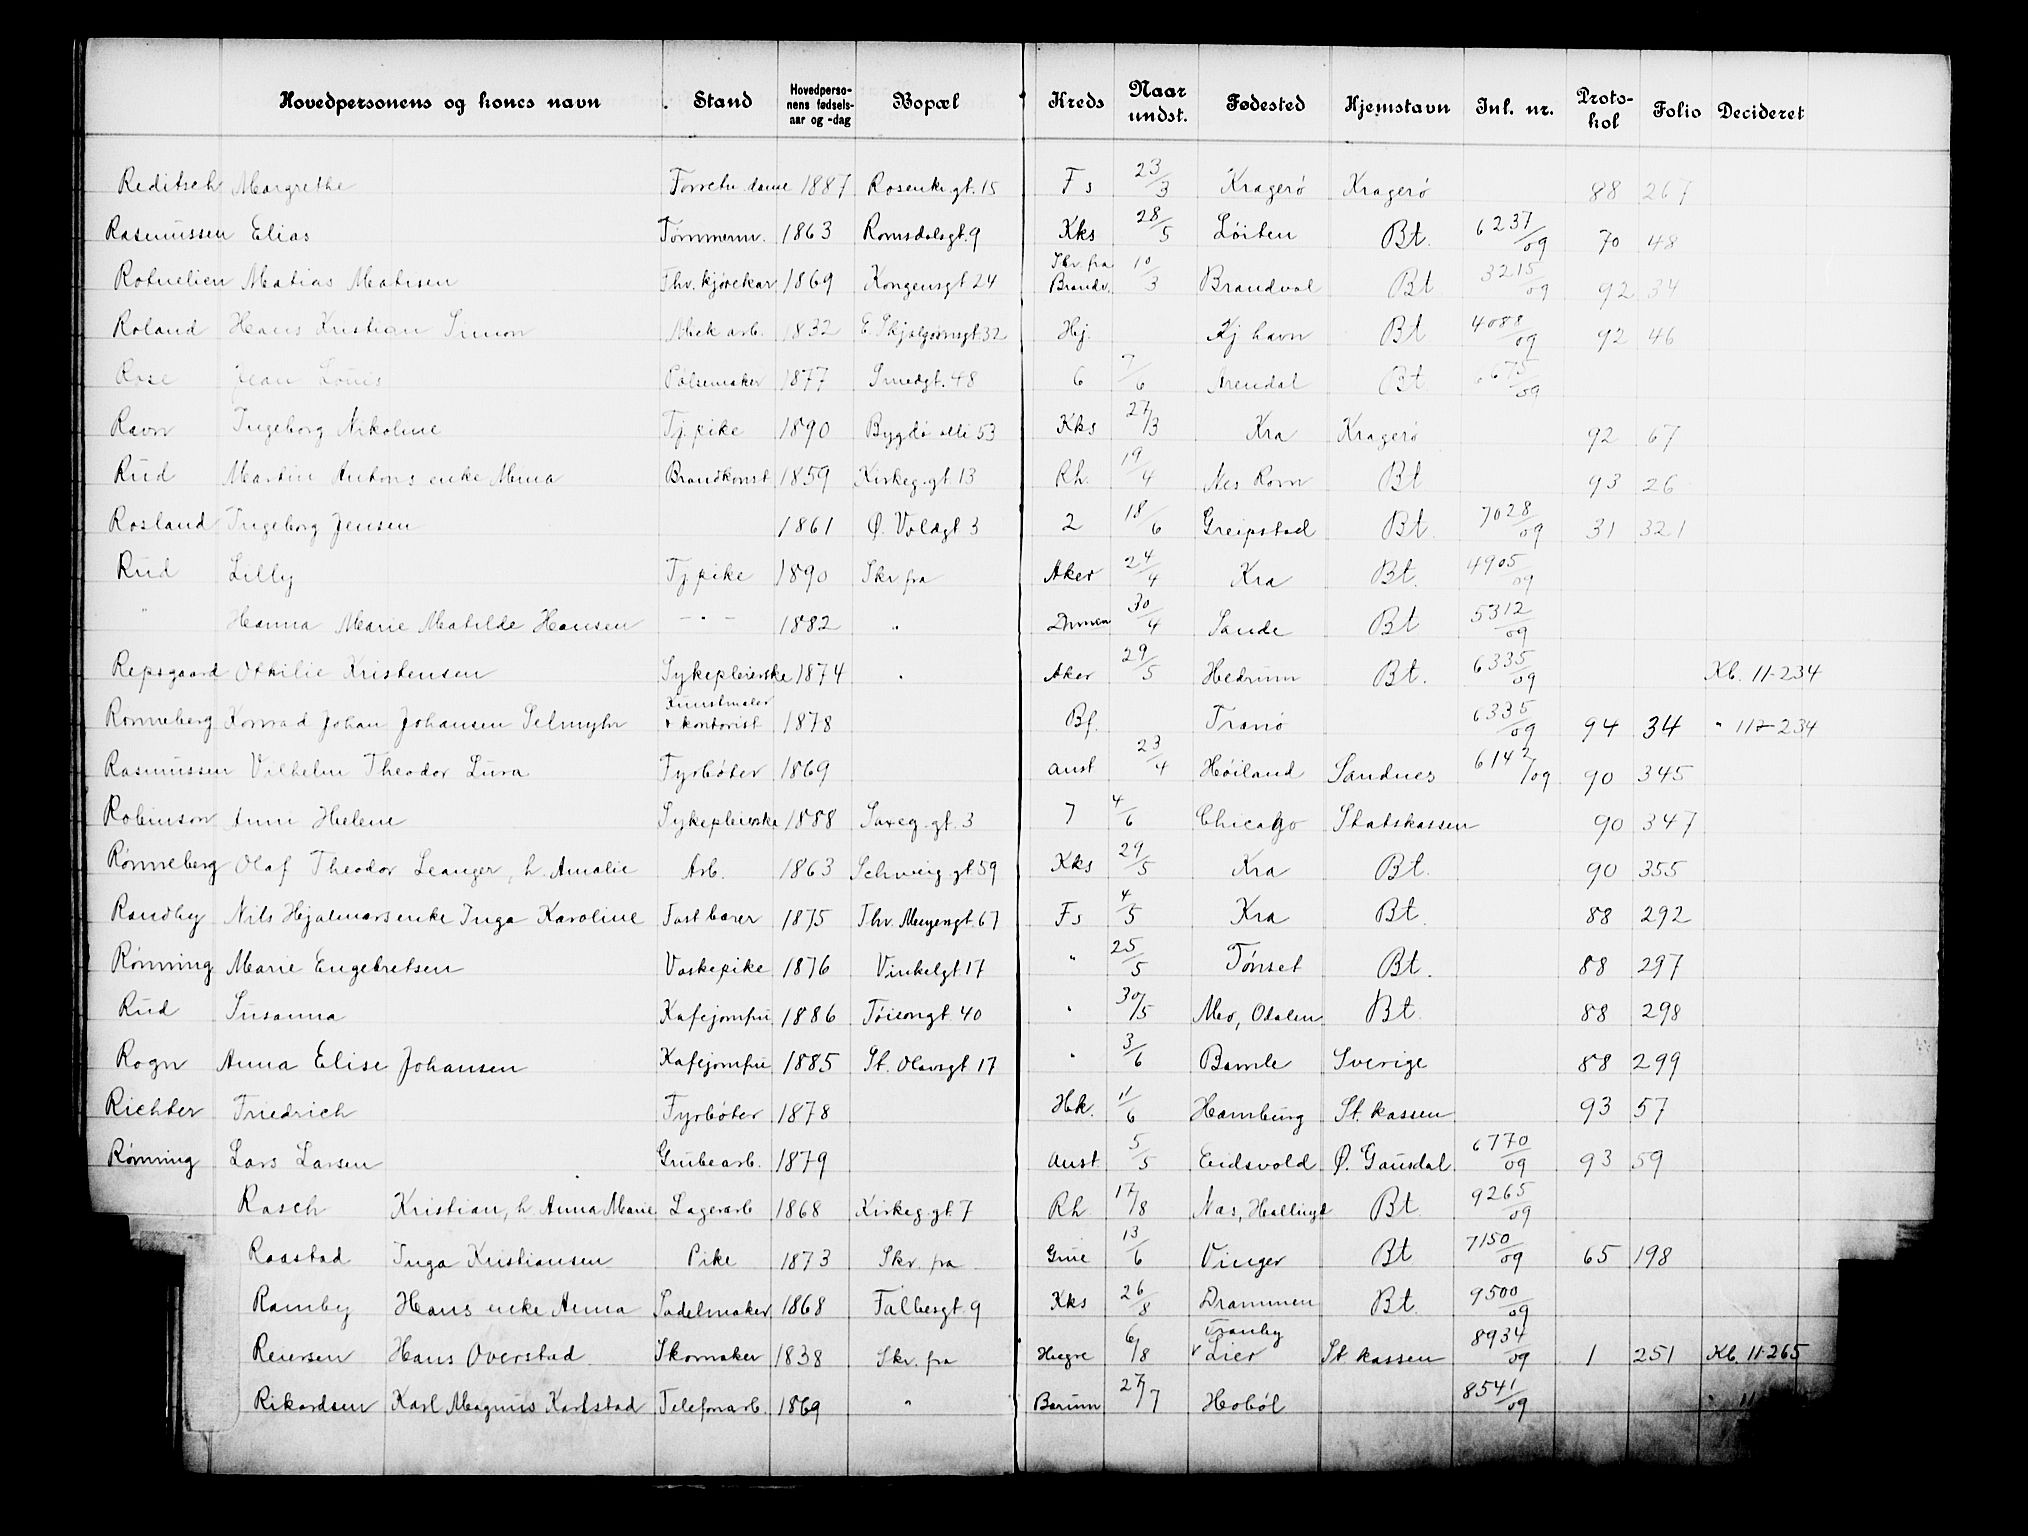 Hovedpersonens og konens navn Stand Hovedperso-nens fødsels-aar og -dag Bopæl Kreds Naar undst. Fødested Hjemstavn Inl. nr. Proto-kol Folio Decideret
Reditsch Margrethe 1887 Rosenkr.gt. 15 Fs 23/3 Kragerø Kragerø 88 267
Rasmussen Elias Tømmerm. 1863 Romsdalsgt. 9 Kks 28/5 Løiten Bt. 6237/09 70 48
Matias Matisen Thv. kjørekar 1869 Kongensgt 24 Skr. fra Brandv. 10/3 Brandval Bt 3215/09 92 34
Roland Hans Kristian Simon Mek arb. 1832 E. Skjalgsonsgt. 32 Hj. Kj havn Bt 4088/09 92 46
Rose Jean Louis Pølsemaker 1877 Smedgt. 48 6 7/6 Arendal Bt 6675/09
Ravn Ingeborg Nikoline Tj pike 1890 Bygdø alle 53 Kks 27/3 Kra Kragerø 92 67
Rud Martin Antons enke Mina Brandkonst 1859 Kirkeg.gt 13 Rh. 19/4 Nes Rom Bt 93 26
Rosland Ingeborg Jensen 1861 Ø. Voldgt 3 2 18/6 Greipstad Bt. 7028/09 31 321
Rud Lilly Tj pike 1890 Skr fra Aker 24/4 Kra Bt. 4905/09
" Hanna Marie Matilde Hansen - " - 1882 " Drmen 30/4 Sande Bt 5312/09
Repsgaard Othilie Kristensen Sykepleierske 1874 " Aker 29/5 Hedrum Bt. 6335/09 Kb. 11-234
Rønneberg Konrad Johan Johansen Selmyhr Kunstmaler + kontorist 1878 Bf. Tranø 6335/09 94 34 " 11-234
Rasmussen Vilhelm Theodor Lura Fyrbøter 1869 Aust 23/4 Høiland Sandnes 6142/09 90 345
Robinson Anni Helene Sykepleierske 1888 Saxeg.gt. 3 7 4/6 Chicago Statskassen 90 347
Rønneberg Olaf Theodor Leanger, h. Amalie Arb. 1863 Schweig.gt 59 Kks 29/5 Kra Bt. 90 355
Randby Nils Hjalmars enke Inga Karoline Fast bærer 1875 Thv. Meyersgt. 67 Fs 4/5 Kra Bt. 88 292
Rønning Marie Engebretsen Vaskepike 1876 Vinkelgt. 17 " 25/5 Tønset Bt. 88 297
Rud Susanna Kafejomfru 1886 Tøiengt 40 " 30/5 Mo, Odalen Bt. 88 298
Rogn Anna Elise Johansen Kafejomfru 1885 St. Olavsgt 17 " 3/6 Bamle Sverige 88 299
Richter Friedrich Fyrbøter 1878 Hk. 11/6 Hamburg St. kassen 93 57
Rønning Lars Larsen Grubearb. 1879 Aust. 5/5 Eidsvold Ø. Gausdal 6770/09 93 59
Rasch Kristian, h. Anna Marie Lagerarb 1868 Kirkeg.gt. 7 Rh. 17/8 Nas, Hallingd Bt. 9265/09
Raastad Inga Kristiansen Pike 1873 Skr. fra Grue 13/6 Vinger Bt 7150/09 65 198
Ramby Hans enke Anna Sadelmaker 1868 Falbesgt. 9 Kks 26/8 Drammen Bt. 9500/09
Reiersen Hans Overstad Skomaker 1838 Skr. fra Hegre 6/8 Tranby Lier St kassen 8934/09 1 251 Kb. 11-265
Rikardsen Karl Magnus Karlstad Telefonarb. 1869 " Bærum 27/7 Hobøl 8541/09 " 11